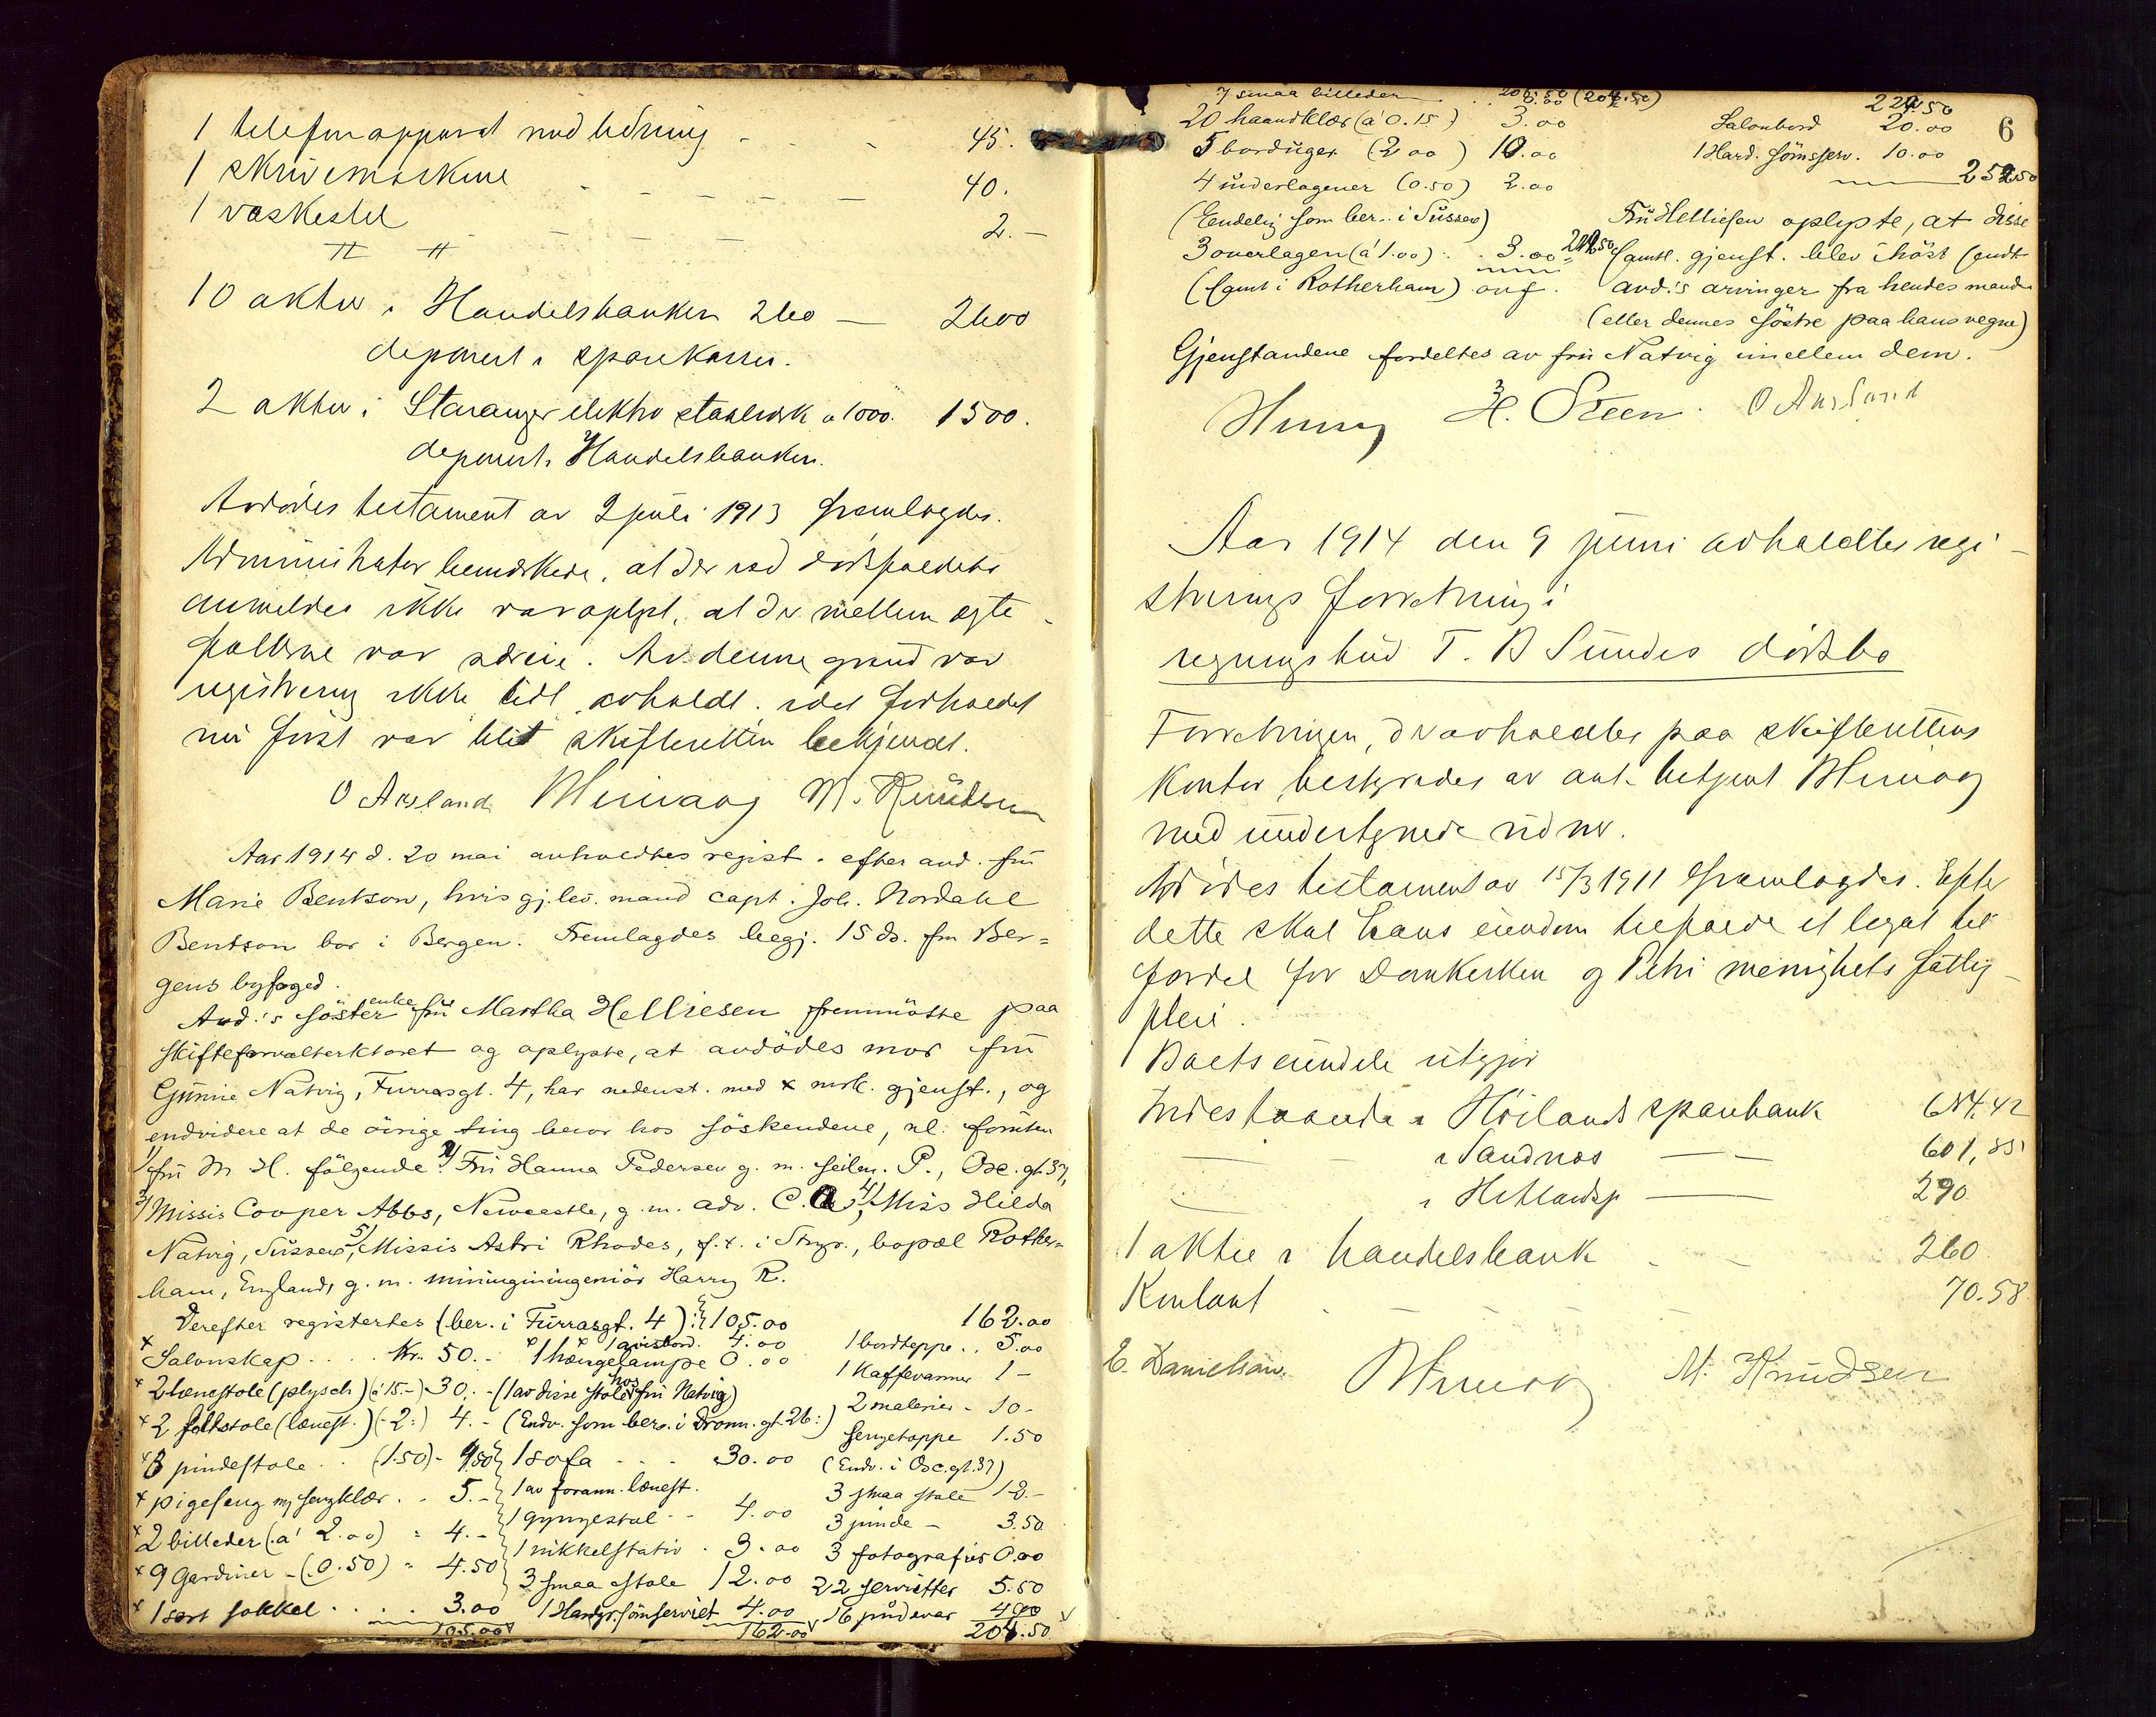 1 telefonapparat med ledning - - - 45.
1 skrivemaskine - - - - 40.
1 vaskestel - - - - 2.-
10 aktier i Handelsbanken 260 — 2600
deponert i sparekassen.
2 aktier i Stavanger elektro staalverk a 1000. 1500.
deponert i Handelsbanken.
Avdødes testament av 2 juli 1913 fremlagdes.
Administrator bemerkede, at der ved dødsfaldets
anmeldes ikke var oplyst, at der mellem egte-
fællerne var særeie. Av denne grund var
registrering ikke tidl. avholdt, idet forholdet
nu først var blit skifteretten bekjendt.
O Aasland M. Knudsen
Aar 1914 d. 20 mai avholdtes regist. efter avd. frü
Marie Bentson, hvis gj.lev. mand capt. Joh. Nordahl
Bentson bor i Bergen. Fremlagdes begj. 15 ds. fra Ber=
gens byfoged.
Avd.'s søster enke frü Martha Helliesen fremmötte paa
skifteforvalterktoret og oplyste, at avdödes mor frü
Günnie Natvig, Furrasgt. 4, har nedenst. med x mrk. gjenst., og
endvidere at de övrige ting beror hos söskendene, nl. foruten
1/ frü M. H. fölgende: 2/ Frü Hanna Pedersen g. m. seilm. P., Osc. gt. 37,
3/ Missis Cooper Abbs, Newcastle, g. m. adv. C. A., 4/ Miss Hilda
Natvig, Süssex, 5/ Missis Astri Rhodes, f. t. i Stvgr., bopæl Rother=
ham, England, g. m. miningingeniör Harry R.
Derefter registertes (ber. i Fürrasgt. 4): 105.00 162.00
x Salonskap . . . . Kr. 50.- x 1 x 1 avisbord. 4.00 1 bordteppe . . 5.00
1 hængelampe 0.00 1 Kaffevarmer 1-
x 2 lænestole (plysch) (á 15.-) 30.- (1 av disse stole hos frü Natvig)
2 malerier - 10-
x 2 feltstole (lænest.) (-2:) 4.- (Endv. som bero. i Dronn. gt. 26:)
Sengetæppe 1.50
x 3 pindestole . . (1.50)- 4.50 1 sofa - - - 30.00 (Endv. i Osc. gt. 37)
x pigeseng m/ sengklær . . 5.- 1 av forann. lænest. 3 smaa stole 12.-
x 2 billeder (á 2.00) = 4.- 1 gyngestol - - 4.00 3 pinde - 3.50
x 9 Gardiner - (0.50) = 4.50 1 nikkelstativ . 3.00 3 fotografier 0.00
3 smaa stole 12.00 22 servietter 5.50
x 1 sort sokkel . . . . 3.00 1 Hardgr. sömserviet 4.00 16 püdevar 4.00
105.00 162.00 204.50
6
7 smaa billeder . . (204.50)
20 haandklær (á 0.15) 3.00
5 bordüger (2.00) 10.00
4 ünderlagener (0.50) 2.00
(Endelig som ber. i Süssex)
3 overlagen (á 1.00) . . 3.00
(samt i Rotherham)
224.50
Salonbord 20.00
1 Hard. sömserv. 10.00
252.50
Frü Helliesen oplyste, at disse
samtl. gjenst. blev i höst sendt
avd.'s arvinger fra hendes mand
(eller dennes söstre paa hans vegne)
Gjenstandene fordeltes av frü Natvig imellem dem.
H. Steen. O Aasland
Aar 1914 den 9 juni avholdtes regi-
strerings forretning i
regningsbud T. B Sundes dødsbo
Forretningen, der avholdtes paa skifterettens
kontor, bestyredes av aut. betjent
med undertegnede vidner.
Avdødes testament av 15/3 1911 fremlagdes. Efter
dette skal hans eiendom tilfalde et legat til
fordel for Domkirken og Petri menighets fattig-
pleie.
Boets eiendele utgjør
Indestaaende i Høilands sparebank 654.42
— — i Sandnes — — 601,85
i Hetlands sp — 290
1 aktie i handelsbank - - 260
Kontant - - - - 70.58
E. Danielsen. M. Knudsen